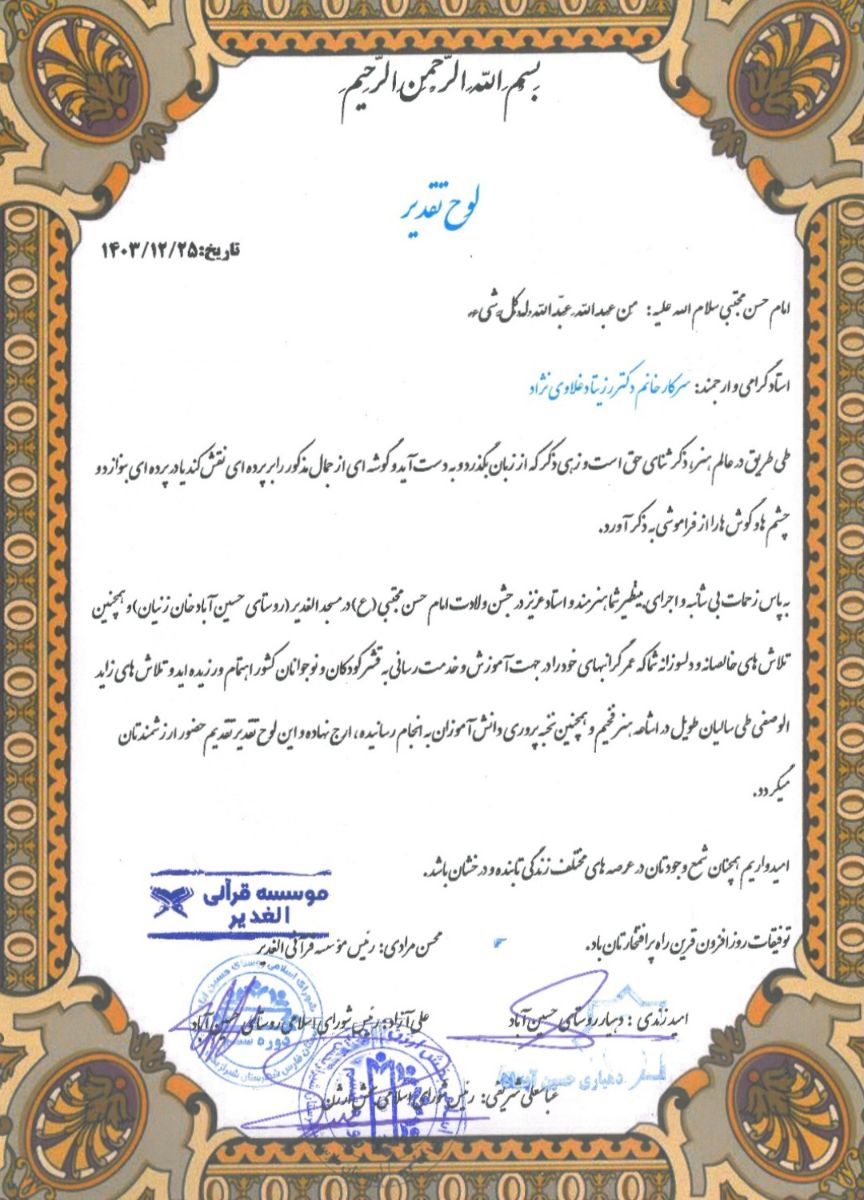 بسم الله الرحمن الرحیم
لوح تقدیر
تاریخ:۱۴۰۳/۱۲/۲۵
امام حسن مجتبی سلام الله علیه: من عبدالله، عبّدالله له کل شیء
استاد گرامی و ارجمند: سرکار خانم دکتر رزیتا دغلاوی نژاد
طی طریق در عالم هنر، ذکر ثنای حق است و زهی ذکر که از زبان بگذرد و به دست آید و گوشه ای از جمال مذکور را بر پرده ای نقش کند یا در پرده ای بنوازد و
چشم ها و گوش ها را از فراموشی به ذکر آورد.
به پاس زحمات بی شائبه و اجرای بینظیر شما هنرمند و استاد عزیز در جشن ولادت امام حسن مجتبی (ع) در مسجد الغدیر (روستای حسین آباد خان زنیان) و همچنین
تلاش های خالصانه و دلسوزانه شما که عمر گرانبهای خود را در جهت آموزش و خدمت رسانی به قشر کودکان و نوجوانان کشور اهتمام ورزیده اید و تلاش های زاید
الوصفی طی سالیان طویل در اشاعه هنر فخیم و همچنین نخبه پروری دانش آموزان به انجام رسانیده، ارج نهاده و این لوح تقدیر تقدیم حضور ارزشمندتان
میگردد.
امیدواریم همچنان شمع وجودتان در عرصه های مختلف زندگی تابنده و درخشان باشد.
موسسه قرآنی
الغدیر
توفیقات روز افزون قرین راه پر افتخارتان باد.
محسن مرادی: رئیس مؤسسه قرآنی الغدیر
شورای اسلامی روستای حسین آباد
امید زندی: دهیار روستای حسین آباد
علی آزاد: رئیس شورای اسلامی روستای حسین آباد
دوره
دهیاری حسین آباد
عباسعلی شریفی: رئیس شورای اسلامی بخش ارژن